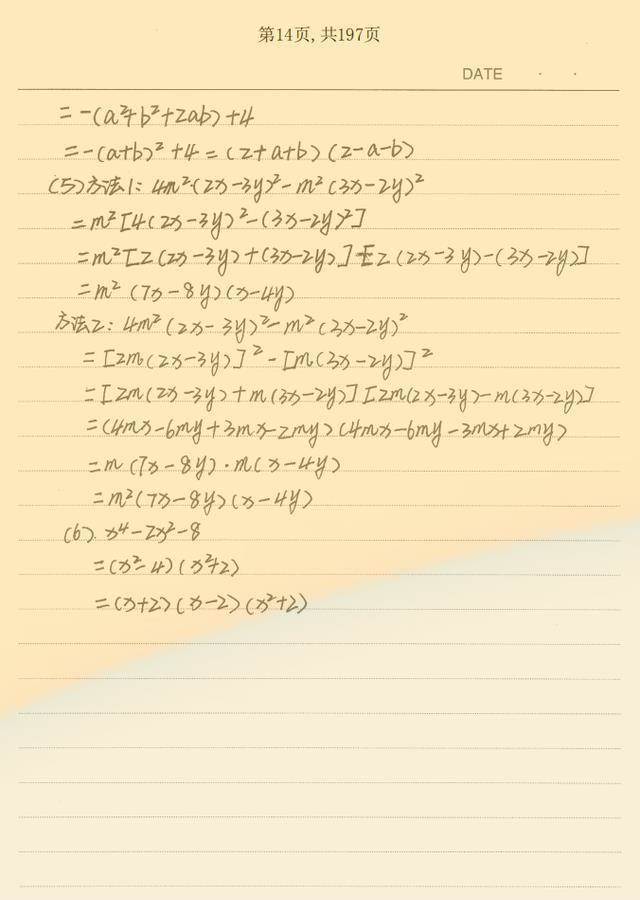 第14页, 共197页
DATE
= -(a²+b²+2ab)+4
= -(a+b)²+4 = (2+a+b)(2-a-b)
(5)方法1: 4m²(2x-3y)²-m²(3x-2y)²
=m²[4(2x-3y)²-(3x-2y)²]
=m²[2(2x-3y)+(3x-2y)][2(2x-3y)-(3x-2y)]
=m²(7x-8y)(x-4y)
方法2: 4m²(2x-3y)²-m²(3x-2y)²
=[2m(2x-3y)]²-[m(3x-2y)]²
=[2m(2x-3y)+m(3x-2y)][2m(2x-3y)-m(3x-2y)]
=(4mx-6my+3mx-2my)(4mx-6my-3mx+2my)
=m(7x-8y)·m(x-4y)
=m²(7x-8y)(x-4y)
(6). x⁴-2x²-8
=(x²-4)(x²+2)
=(x+2)(x-2)(x²+2)